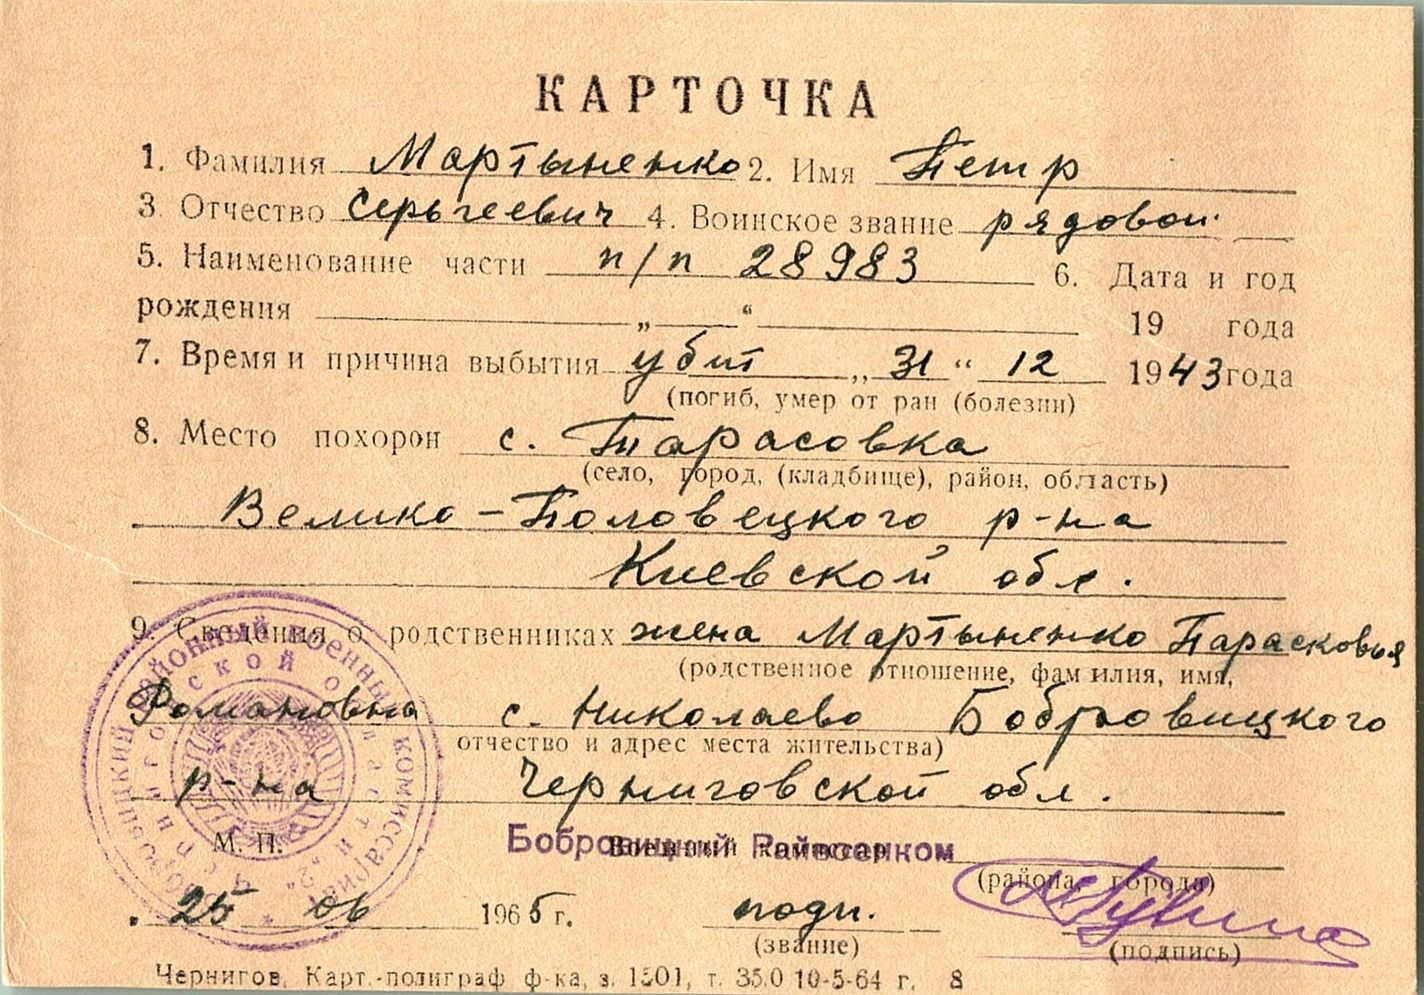 КАРТОЧКА
1. Фамилия Мартыненко 2. Имя Петр
3 Отчество Серьгеевич 4. Воинское звание рядовой
5. Наименование части п/п 28983 6. Дата и год
рождения „ “ 19 года
7. Время и причина выбытия убит „31“ 12 1943 года
(погиб, умер от ран (болезни)
8. Место похорон с. Тарасовка
(село, город, (кладбище), район, область)
Велико-Половецкого р-на
Киевской обл.
9. Сведения о родственниках жена Мартыненко Парасковья
(родственное отношение, фамилия, имя,
Романовна с. Николаево Бобровицкого
отчество и адрес места жительства)
р-на Черниговской обл.
М. П. Военный комиссар
Бобровицкий Райвоенком
(района, города)
25 06 1965 г. подп.
(звание) (подпись)
Чернигов, Карт.-полиграф ф-ка, з. 1501, т. 35.0 10-5-64 г. 8